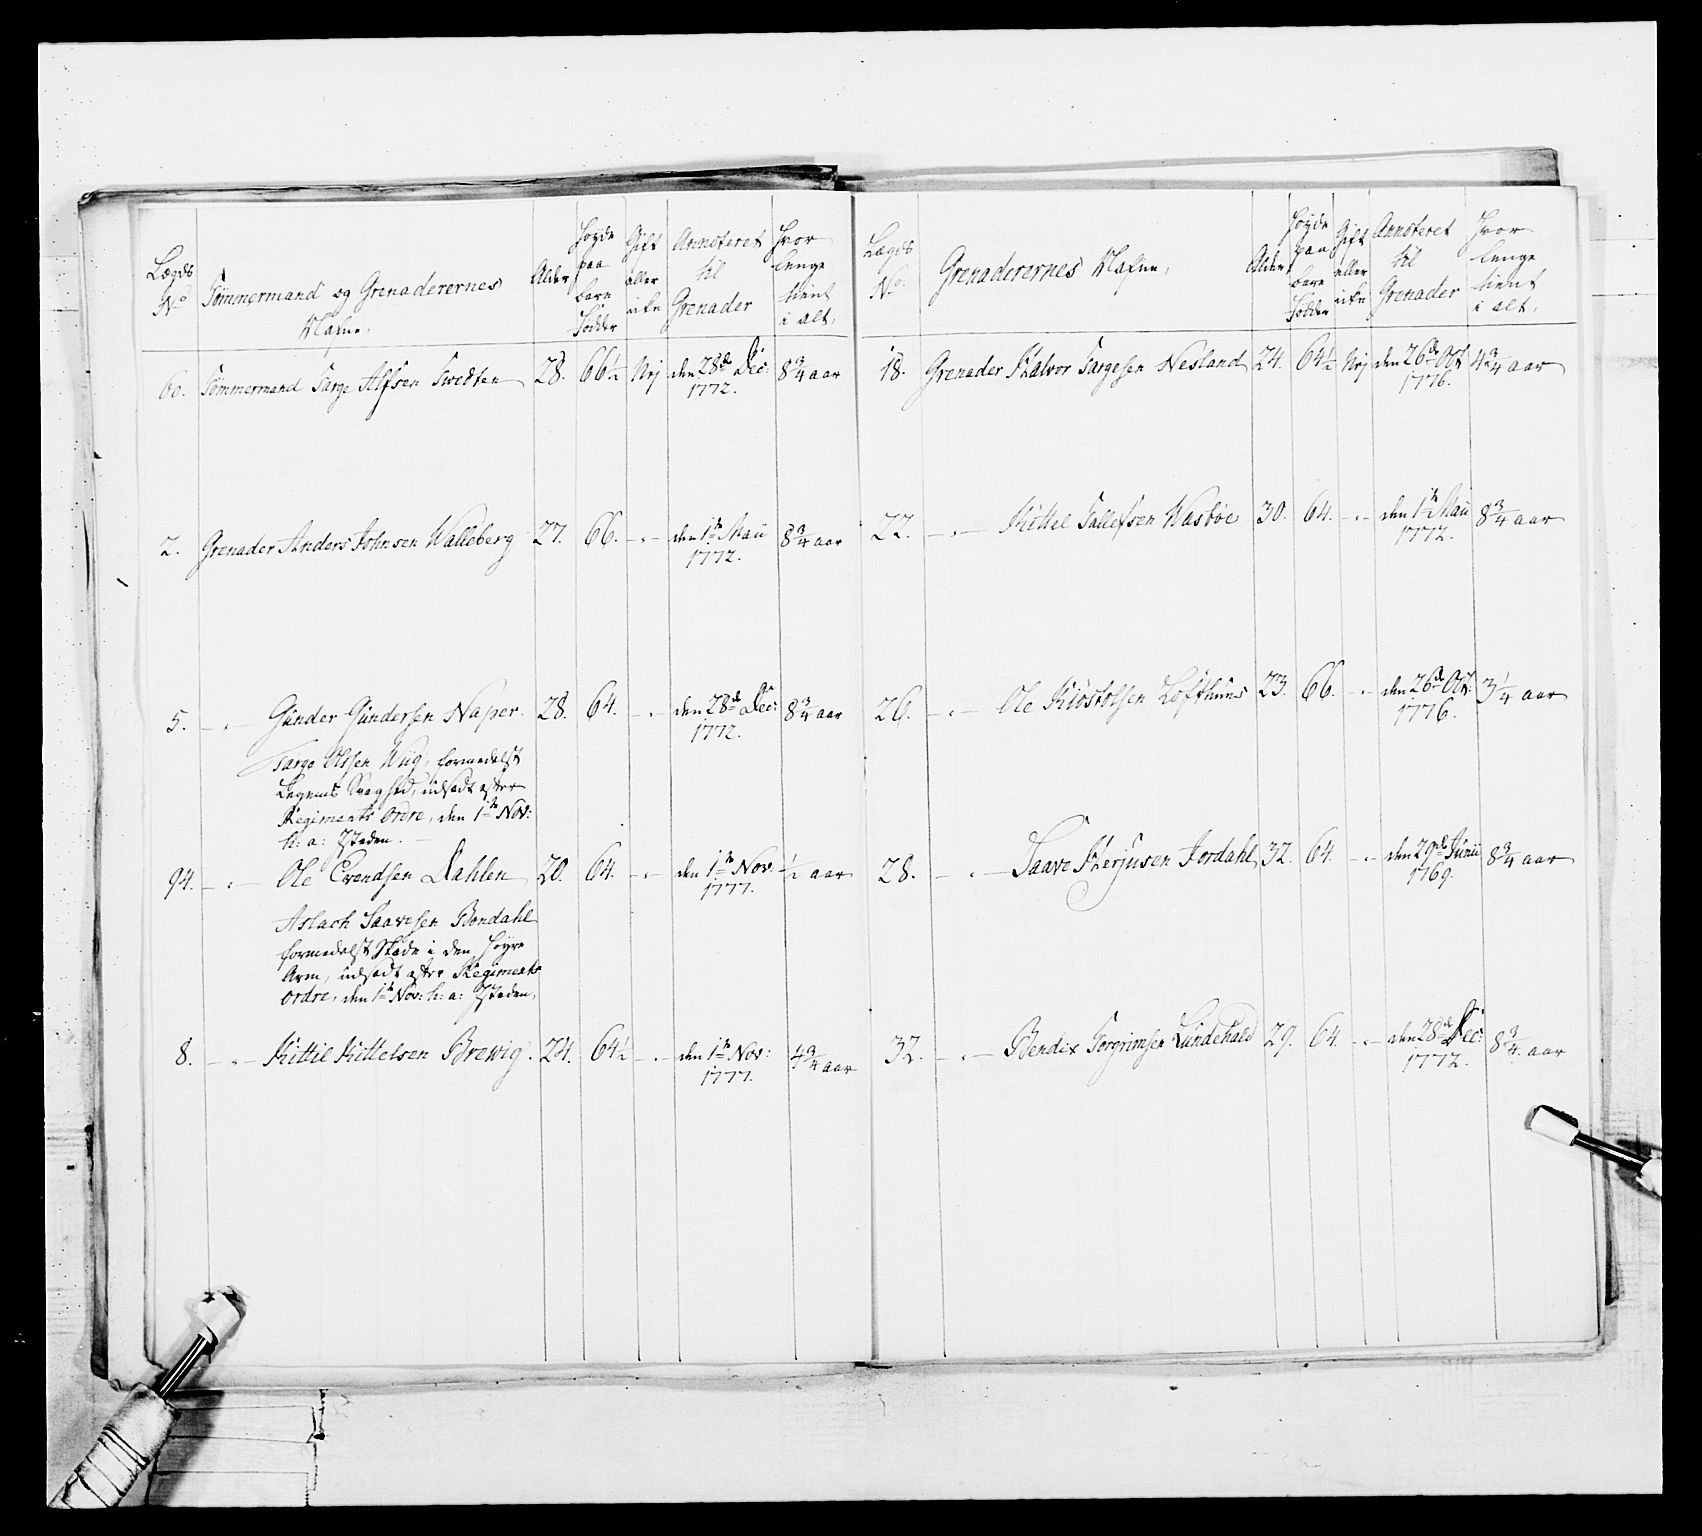 Lægds No
Tømmermand og Grenaderernes Nafne.
Alder
Høyde paa bare Fødder
Gift eller icke
Annoteret til Grenader
Hvor lenge tient i alt.
60. Tømmermand Targe Alfsen Twedten 28. 66½ Nej den 28de Dec: 1772. 8¾ aar
2. Grenader Anders Johnsen Walleberg 27. 66. -"- den 1te Maii 1772. 8¾ aar
5. -"- Gunder Gundersen Naper. 28. 64. -"- den 28de Dec: 1772. 8¾ aar
Targe Olssen Wiig, formedelst
Legems Svaghed, udsadt efter
Regiments Ordre, den 1te Nov:
h: a: I steden.
94. -"- Ole Evendsen Dahlen 20. 64. -"- den 1te Nov: 1777. ½ aar
Aslach Saavesen Bondahl
formedelst Skade i den høyre
Arm, udsadt efter Regiments
Ordre, den 1te Nov: h: a: I steden,
8. -"- Kittil Kittelsen Brewig. 24. 64½ -"- den 1te Nov: 1777. 4¾ aar
Lægds No.
Grenaderernes Nafne,
Alder
Høyde paa bare Fødder
Gift eller icke
Annoteret til Grenader
Hvor lenge tient i alt.
18. Grenader Halvor Targesen Nesland 24. 64½ Nej den 26de Oct: 1776. 4¾ aar
22. -"- Kittel Tallefsen Wasbøe 30. 64. -"- den 1te Maii 1772. 8¾ aar
26. -"- Ole Kiøstolsen Lofthuus 23. 66. -"- den 26de Oct: 1776. 3¼ aar
28. -"- Saave Herjusen Jordahl 32. 64. -"- den 29de Junii 1769. 8¾ aar
32. -"- Bendix Torgrimsen Lundehald 29. 64. -"- den 28de Dec: 1772. 8¾ aar